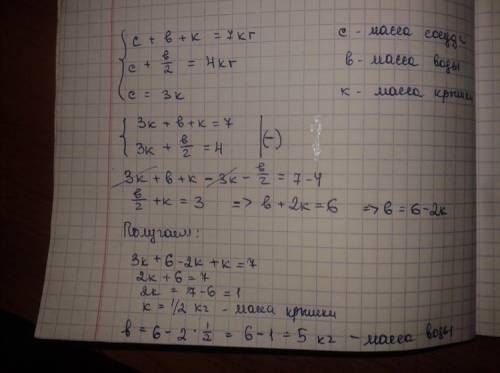 с + в + к = 7кг с - масса сосуда
с + в/2 = 4кг в - масса воды
с = 3к к - масса крышки
3к + в + к = 7
3к + в/2 = 4 (-)
3к + в + к - 3к - в/2 = 7 - 4
в/2 + к = 3 => в + 2к = 6 => в = 6 - 2к
Получаем:
3к + 6 - 2к + к = 7
2к + 6 = 7
2к = 7 - 6 = 1
к = 1/2 кг - масса крышки
в = 6 - 2 · 1/2 = 6 - 1 = 5 кг - масса воды